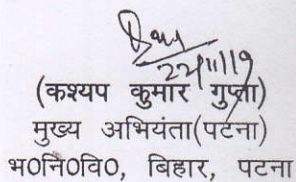 22/11/19
(कश्यप कुमार गुप्ता)
मुख्य अभियंता(पटना)
भ0नि0वि0, बिहार, पटना